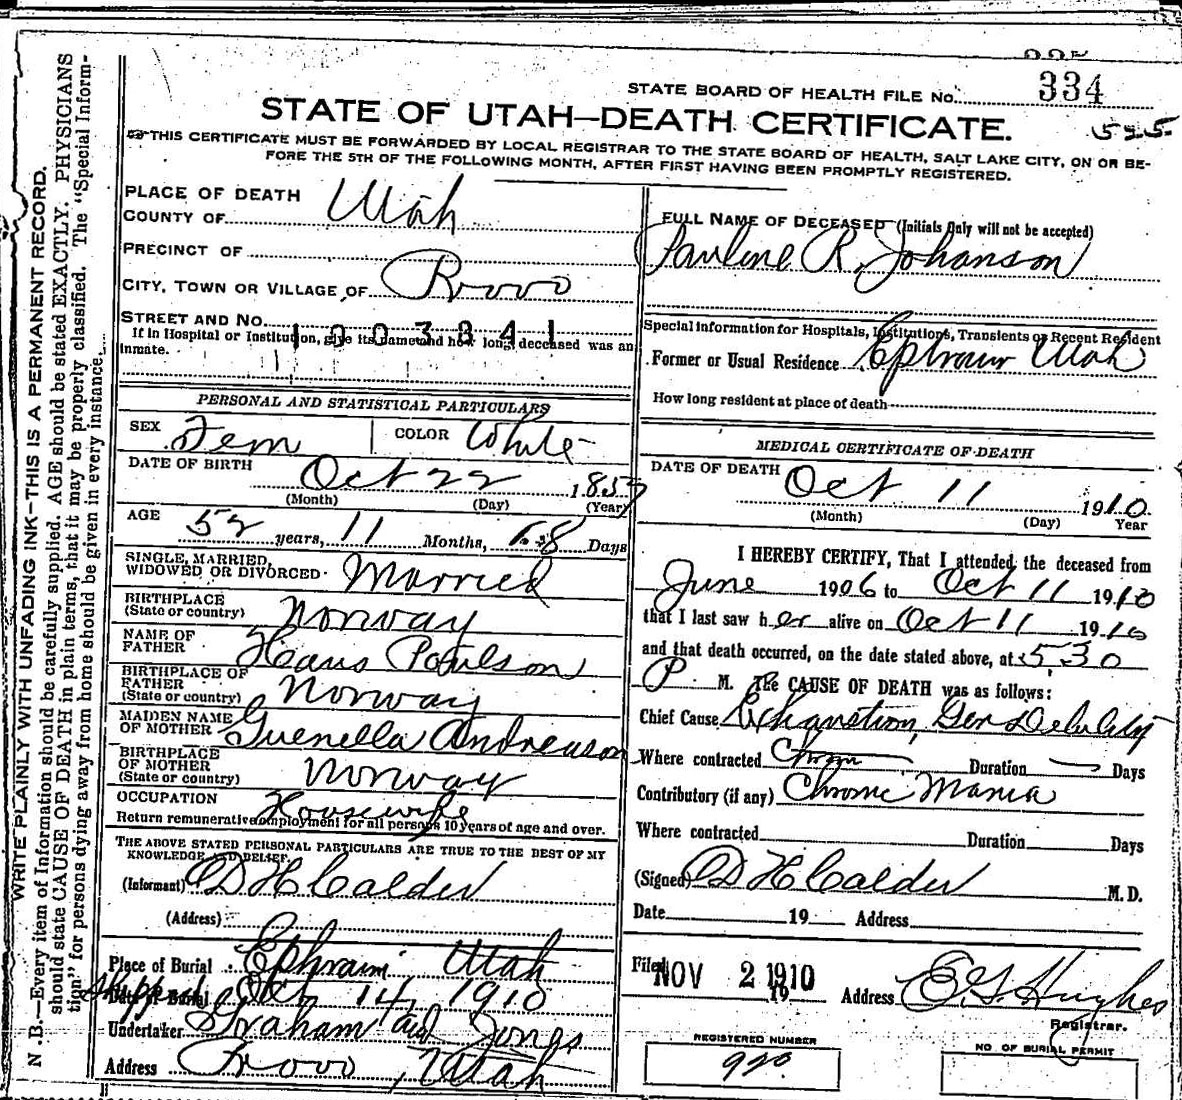 334
STATE BOARD OF HEALTH FILE No.
STATE OF UTAH—DEATH CERTIFICATE.
525.
THIS CERTIFICATE MUST BE FORWARDED BY LOCAL REGISTRAR TO THE STATE BOARD OF HEALTH, SALT LAKE CITY, ON OR BE-
FORE THE 5TH OF THE FOLLOWING MONTH, AFTER FIRST HAVING BEEN PROMPTLY REGISTERED.
WRITE PLAINLY WITH UNFADING INK—THIS IS A PERMANENT RECORD.
N.B.—Every item of Information should be carefully supplied. AGE should be stated EXACTLY. PHYSICIANS
should state CAUSE OF DEATH in plain terms, that it may be properly classified. The "Special Inform-
tion" for persons dying away from home should be given in every instance.
PLACE OF DEATH
COUNTY OF Utah
PRECINCT OF
CITY, TOWN OR VILLAGE OF Provo
STREET AND No.
1003841
If in Hospital or Institution, give its name and how long deceased was an
inmate.
PERSONAL AND STATISTICAL PARTICULARS
SEX Fem COLOR White
DATE OF BIRTH Oct 22 1857
(Month) (Day) (Year)
AGE 52 years, 11 Months, 18 Days
SINGLE, MARRIED,
WIDOWED OR DIVORCED Married
BIRTHPLACE
(State or country) Norway
NAME OF
FATHER Hans Poulson
BIRTHPLACE OF
FATHER
(State or country) Norway
MAIDEN NAME
OF MOTHER Guenella Andreason
BIRTHPLACE
OF MOTHER
(State or country) Norway
OCCUPATION Housewife
Return remunerative employment for all persons 10 years of age and over.
THE ABOVE STATED PERSONAL PARTICULARS ARE TRUE TO THE BEST OF MY
KNOWLEDGE AND BELIEF.
(Informant) D H Calder
(Address)
Place of Burial Ephraim Utah
Shipped Date of Burial Oct 14, 1910
Undertaker Graham and Jones
Address Provo, Utah
FULL NAME OF DECEASED (Initials Only will not be accepted)
Pauline R. Johanson
Special information for Hospitals, Institutions, Transients or Recent Resident
Former or Usual Residence Ephraim Utah
How long resident at place of death
MEDICAL CERTIFICATE OF DEATH
DATE OF DEATH Oct 11 1910
(Month) (Day) Year
I HEREBY CERTIFY, That I attended the deceased from
June 1906 to Oct 11 1910
that I last saw her alive on Oct 11 1910
and that death occurred, on the date stated above, at 530
P M. The CAUSE OF DEATH was as follows:
Chief Cause Exhaustion, Gen Debility
Where contracted Duration Days
Contributory (if any) Chronic Mania
Where contracted Duration Days
(Signed) D H Calder M.D.
Date 19 Address
Filed NOV 2 1910 19 Address E.G. Hughes
Registrar.
REGISTERED NUMBER
920
NO. OF BURIAL PERMIT